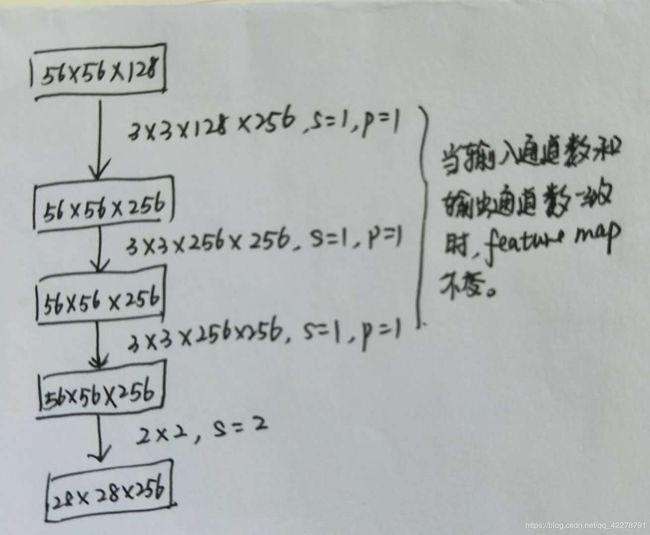 56×56×128
3×3×128×256, s=1, p=1
56×56×256
3×3×256×256, s=1, p=1
56×56×256
3×3×256×256, s=1, p=1
56×56×256
2×2, s=2
28×28×256
当输入通道数和
输出通道数一致
时, feature map
不变。
https://blog.csdn.net/qq_42278791